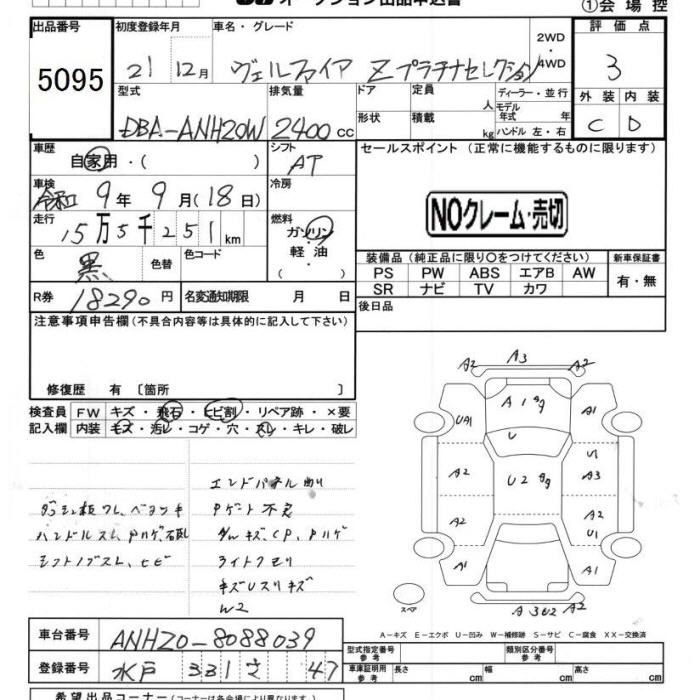 オークション出品申込書
①会場控
出品番号 初度登録年月 車名・グレード 2WD 4WD 評価点
5095 21 12月 ヴェルファイア Zプラチナセレクション 3
型式 排気量 ドア 定員 人 ディーラー・並行 外装 内装
モデル年式 年
DBA-ANH20W 2400cc 形状 積載 kg ハンドル 左・右 C D
車歴 シフト セールスポイント (正常に機能するものに限ります)
自家用・( ) AT
車検 冷房
令和9年9月(18日)
NOクレーム・売切
走行 燃料
15万5千251km ガソリン
軽油
・( )
色 黒 色替 色コード
装備品(純正品に限り○をつけてください) 新車保証書
PS PW ABS エアB AW 有・無
SR ナビ TV カワ
R券 18290円 名変通知期限 月 日
後日品
注意事項申告欄(不具合内容等は具体的に記入して下さい)
修復歴 有〔箇所 〕
検査員 FW キズ・飛石・ヒビ割・リペア跡・×要
記入欄 内装 キズ・汚レ・コゲ・穴・スレ・キレ・破レ
A2 A3 A2
UA1 A1 A1
U
A2 U2 U1 A3
A2 A2 U1
A1 A1
A 3U2 A2
スペア
エンドパネル
Pゲート不良
キズ、CP、Pハゲ
ハンドルスレ、Pハゲ
シフトノブスレ、ヒビ
ライトクモリ
キズUスリキズ
W2
A-キズ E-エクボ U-凹み W-補修跡 S-サビ C-腐食 XX-交換済
車台番号 ANH20-8088039
型式指定番号 参考 類別区分番号 参考
登録番号 水戸 331 さ 47
車庫証明用 参考 長さ cm 幅 cm 高さ cm
希望出品コーナー(コーナーは各会場により異なります)